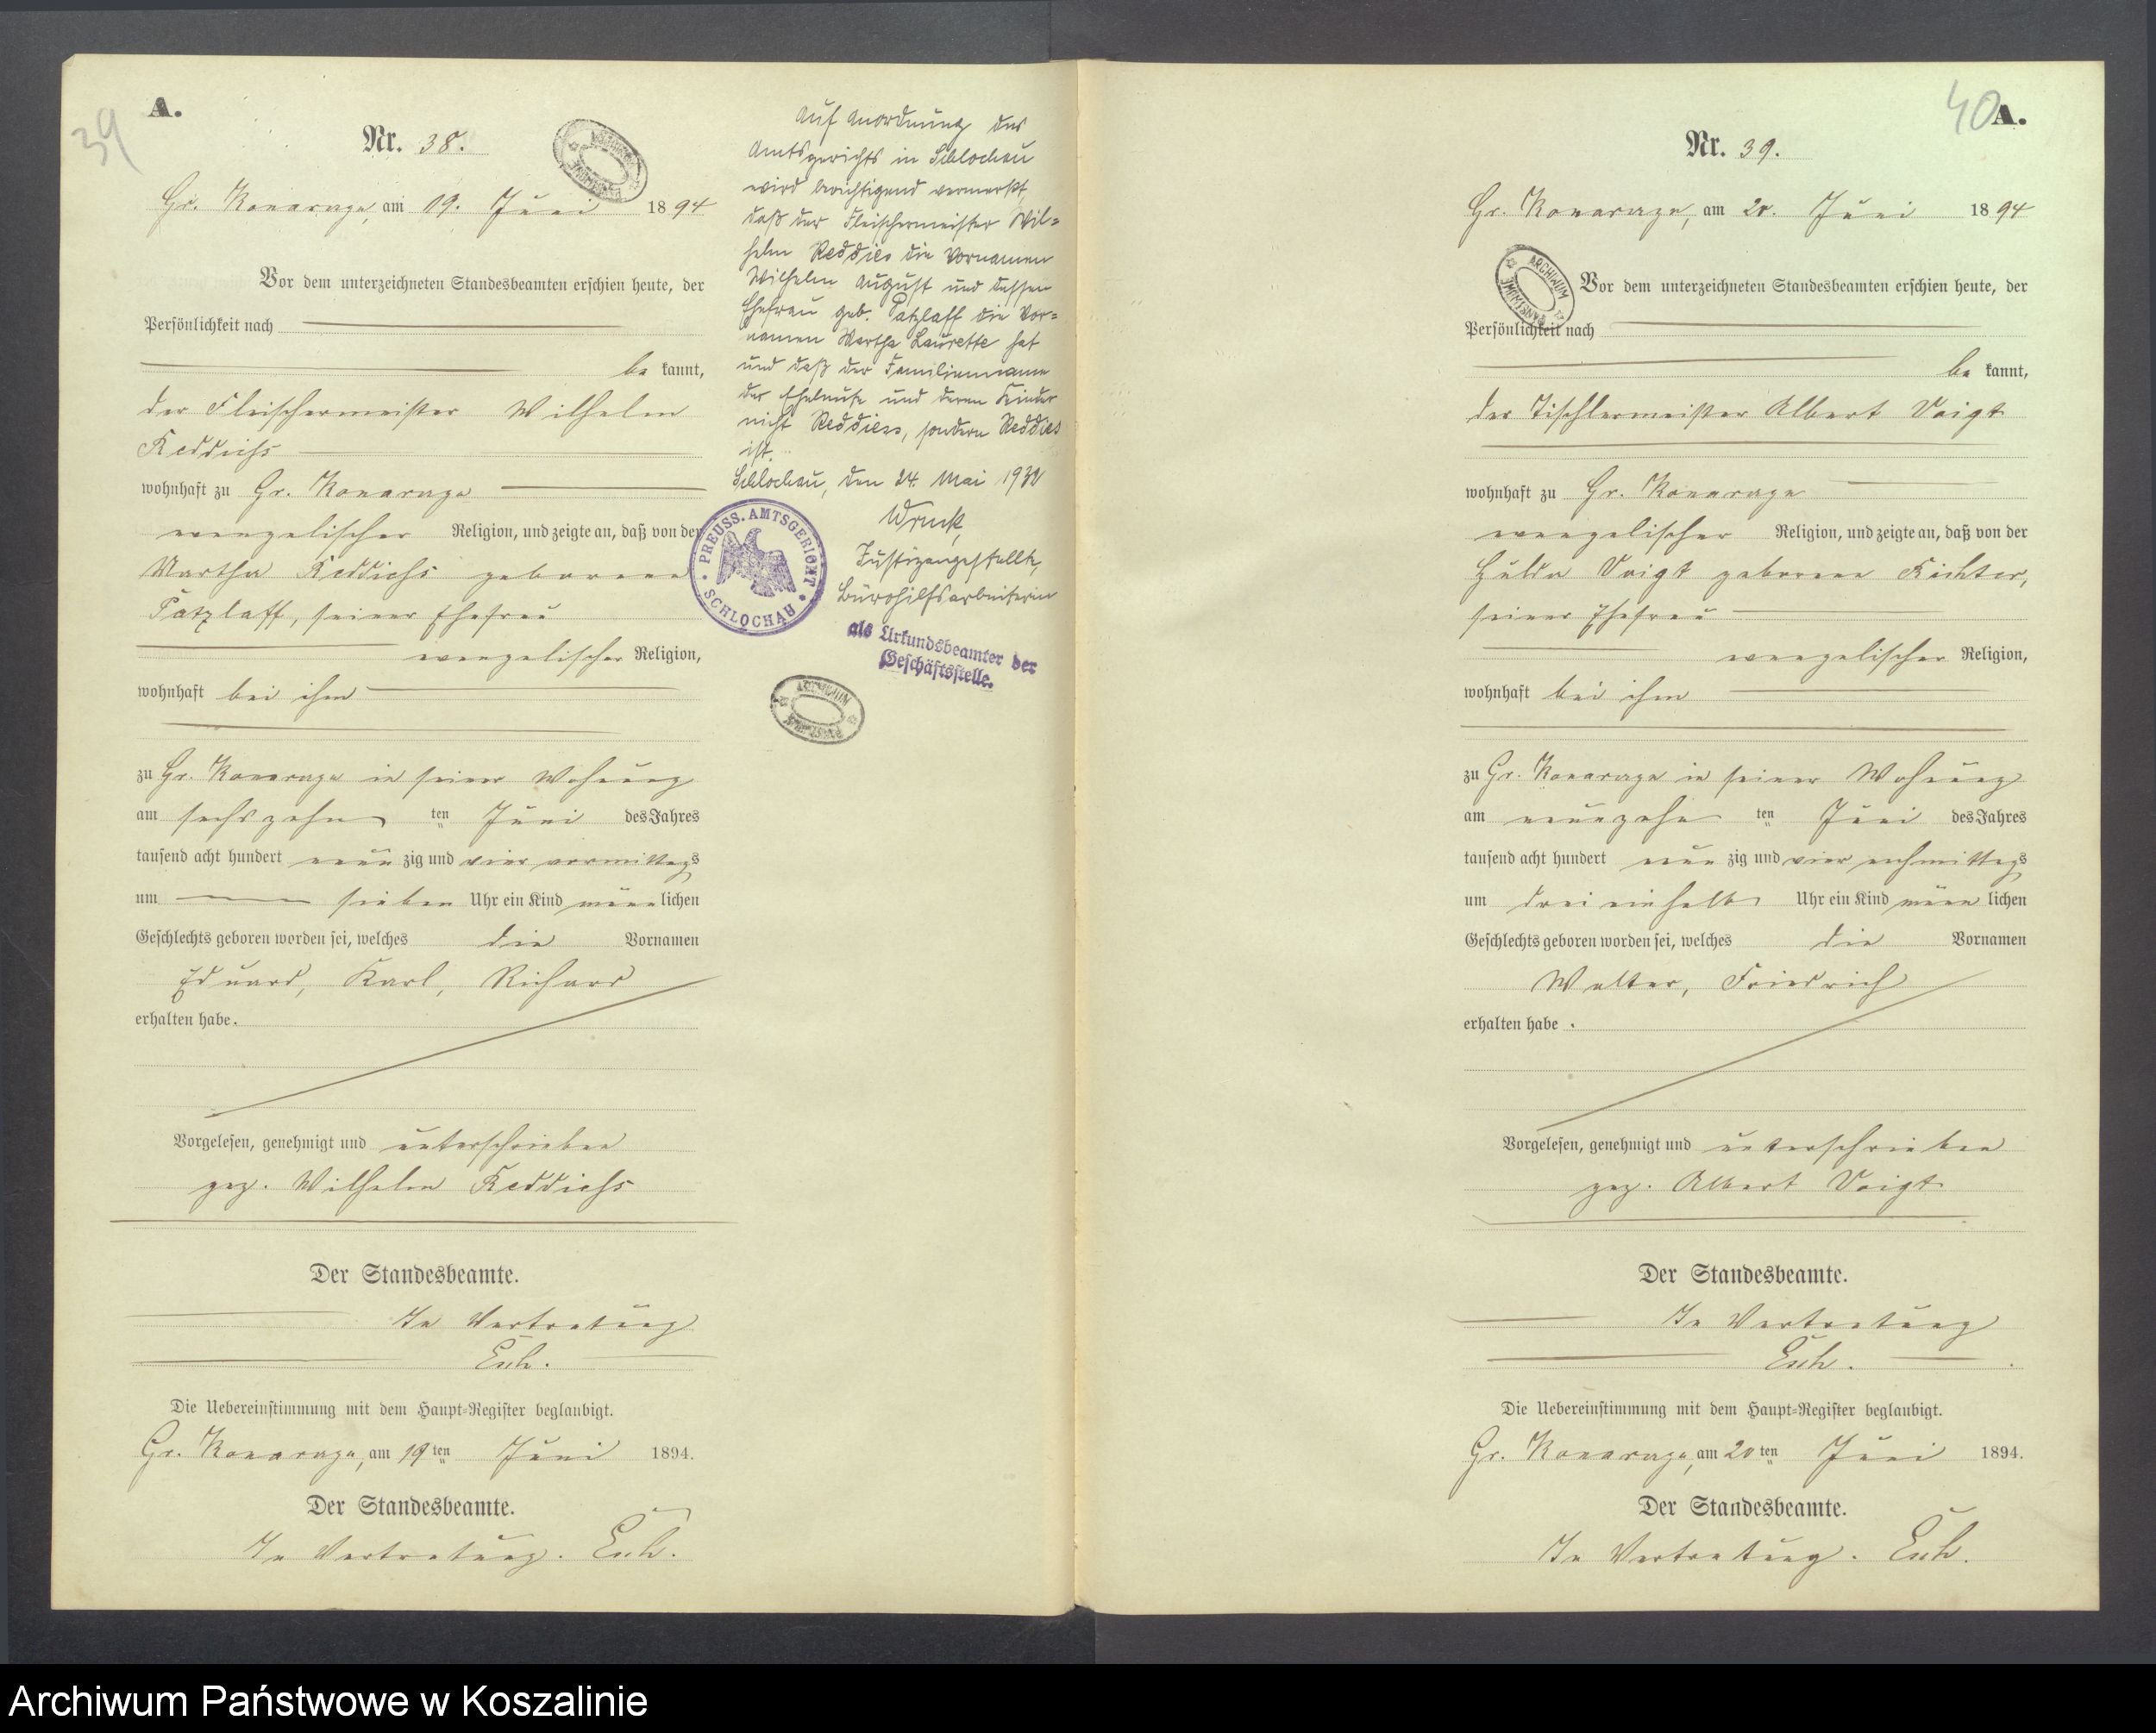 39
A.
Nr. 38.
Gr. Konarzyn, am 19. Juni 1894
Vor dem unterzeichneten Standesbeamten erschien heute, der
Persönlichkeit nach
be kannt,
der Fleischermeister Wilhelm
Reddiess
wohnhaft zu Gr. Konarzyn
evangelischer Religion, und zeigte an, daß von der
Martha Reddiess geborenen
Patzlaff, seiner Ehefrau
evangelischer Religion,
wohnhaft bei ihm
zu Gr. Konarzyn in seiner Wohnung
am sechszehn ten Juni des Jahres
tausend acht hundert neun zig und vier vormittags
um sieben Uhr ein Kind männlichen
Geschlechts geboren worden sei, welches die Vornamen
Eduard, Karl, Richard
erhalten habe.
Vorgelesen, genehmigt und unterschrieben
gez. Wilhelm Reddiess
Der Standesbeamte.
In Vertretung
Die Uebereinstimmung mit dem Haupt-Register beglaubigt.
Gr. Konarzyn, am 19ten Juni 1894.
Der Standesbeamte.
In Vertretung.
Auf Anordnung des
Amtsgerichts in Schlochau
wird berichtigend vermerkt,
daß der Fleischermeister Wil-
helm Reddies die Vornamen
Wilhelm August und dessen
Ehefrau geb. Patzlaff die Vor-
namen Martha Laurette hat
und daß der Familienname
der Eheleute und deren Kinder
nicht Reddiess, sondern Reddies
ist.
Schlochau, den 24. Mai 1932
Justizangestellte,
Bürohilfsarbeiterin
PREUSS. AMTSGERICHT
SCHLOCHAU
als Urkundsbeamter der
Geschäftsstelle.
ARCHIWUM
40
A.
Nr. 39.
Gr. Konarzyn, am 20. Juni 1894
ARCHIWUM
Vor dem unterzeichneten Standesbeamten erschien heute, der
Persönlichkeit nach
be kannt,
der Tischlermeister Albert Voigt
wohnhaft zu Gr. Konarzyn
evangelischer Religion, und zeigte an, daß von der
Hulda Voigt geborenen Richter,
seiner Ehefrau
evangelischer Religion,
wohnhaft bei ihm
zu Gr. Konarzyn in seiner Wohnung
am neunzehn ten Juni des Jahres
tausend acht hundert neun zig und vier nachmittags
um drei einhalb Uhr ein Kind männ lichen
Geschlechts geboren worden sei, welches die Vornamen
Walter, Friedrich
erhalten habe.
Vorgelesen, genehmigt und unterschrieben
gez. Albert Voigt
Der Standesbeamte.
In Vertretung
Die Uebereinstimmung mit dem Haupt-Register beglaubigt.
Gr. Konarzyn, am 20ten Juni 1894.
Der Standesbeamte.
In Vertretung.
Archiwum Państwowe w Koszalinie